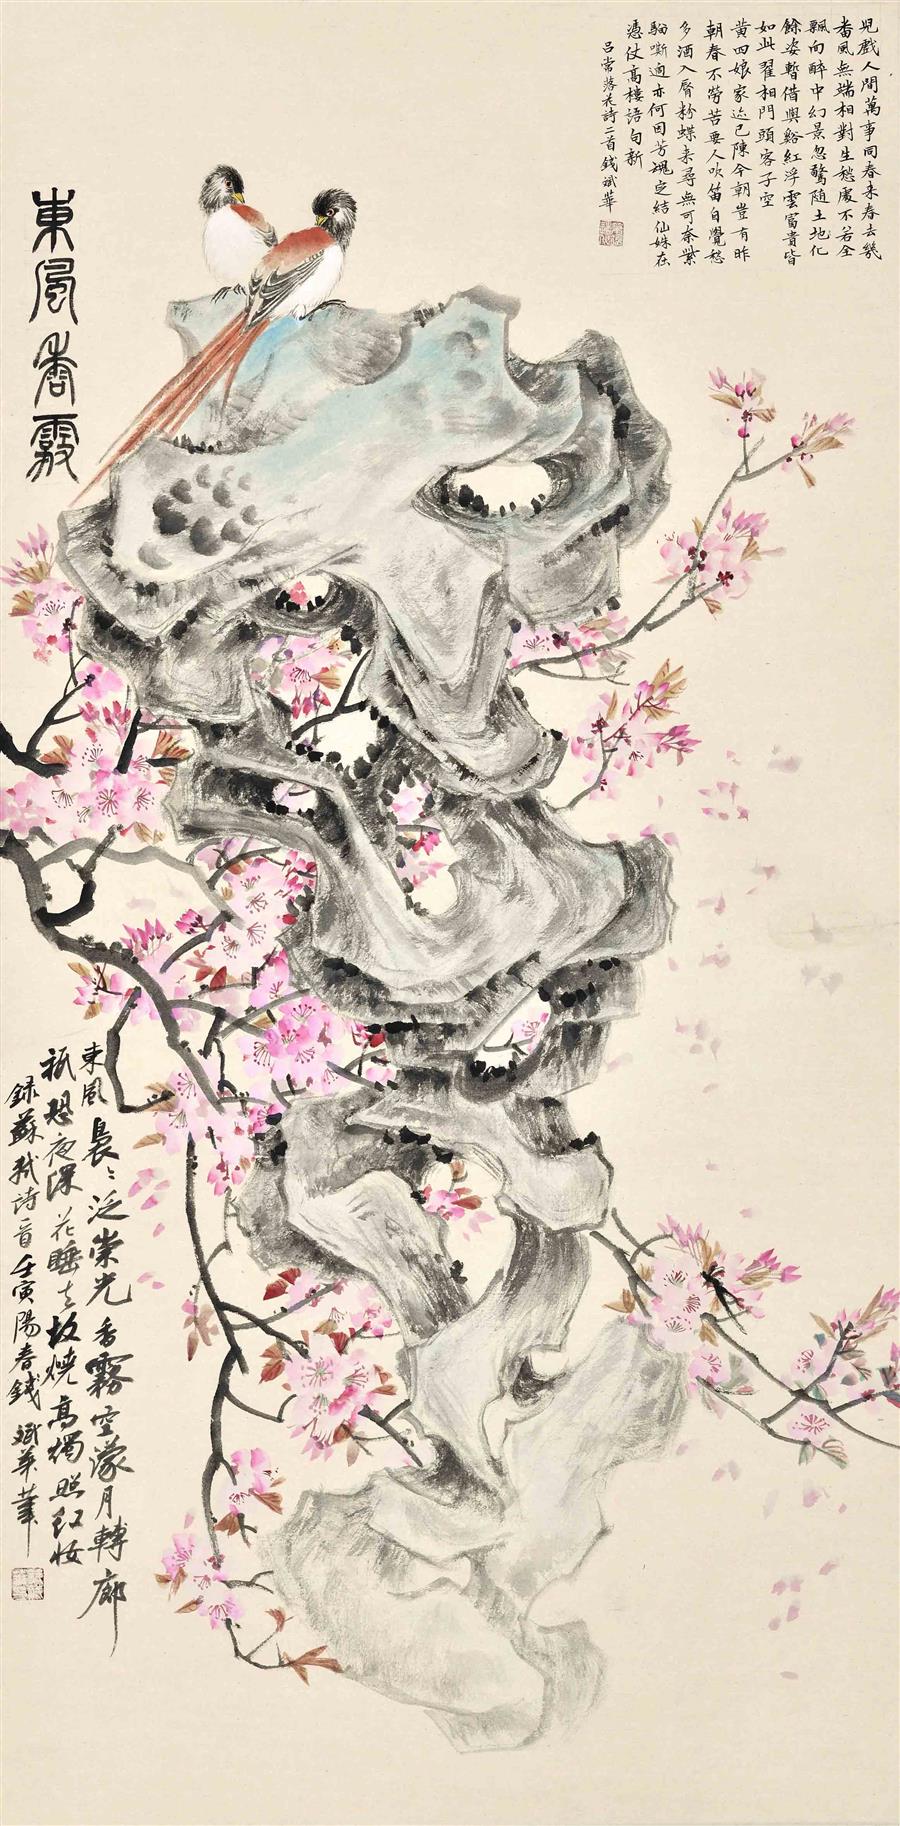 兒戲人間萬事同春来春去幾
番風無端相對生愁處不若全
飄向醉中幻景忽驚随土地化
餘姿暫借與谿紅浮雲富貴皆
如此翟相門頭客子空
黃四娘家迹已陳今朝豈有昨
朝春不勞苦要人吹笛自覺愁
多酒入脣粉蝶来尋無可奈紫
騮嘶過亦何因芳魂定結仙姝在
憑仗高樓語句新
呂常落花詩二首錢斌華
東風香霧
東風裊〻泛崇光香霧空濛月轉廊
祇恐夜深花睡去故燒高燭照紅妝
録蘇軾詩一首壬寅陽春錢斌華筆